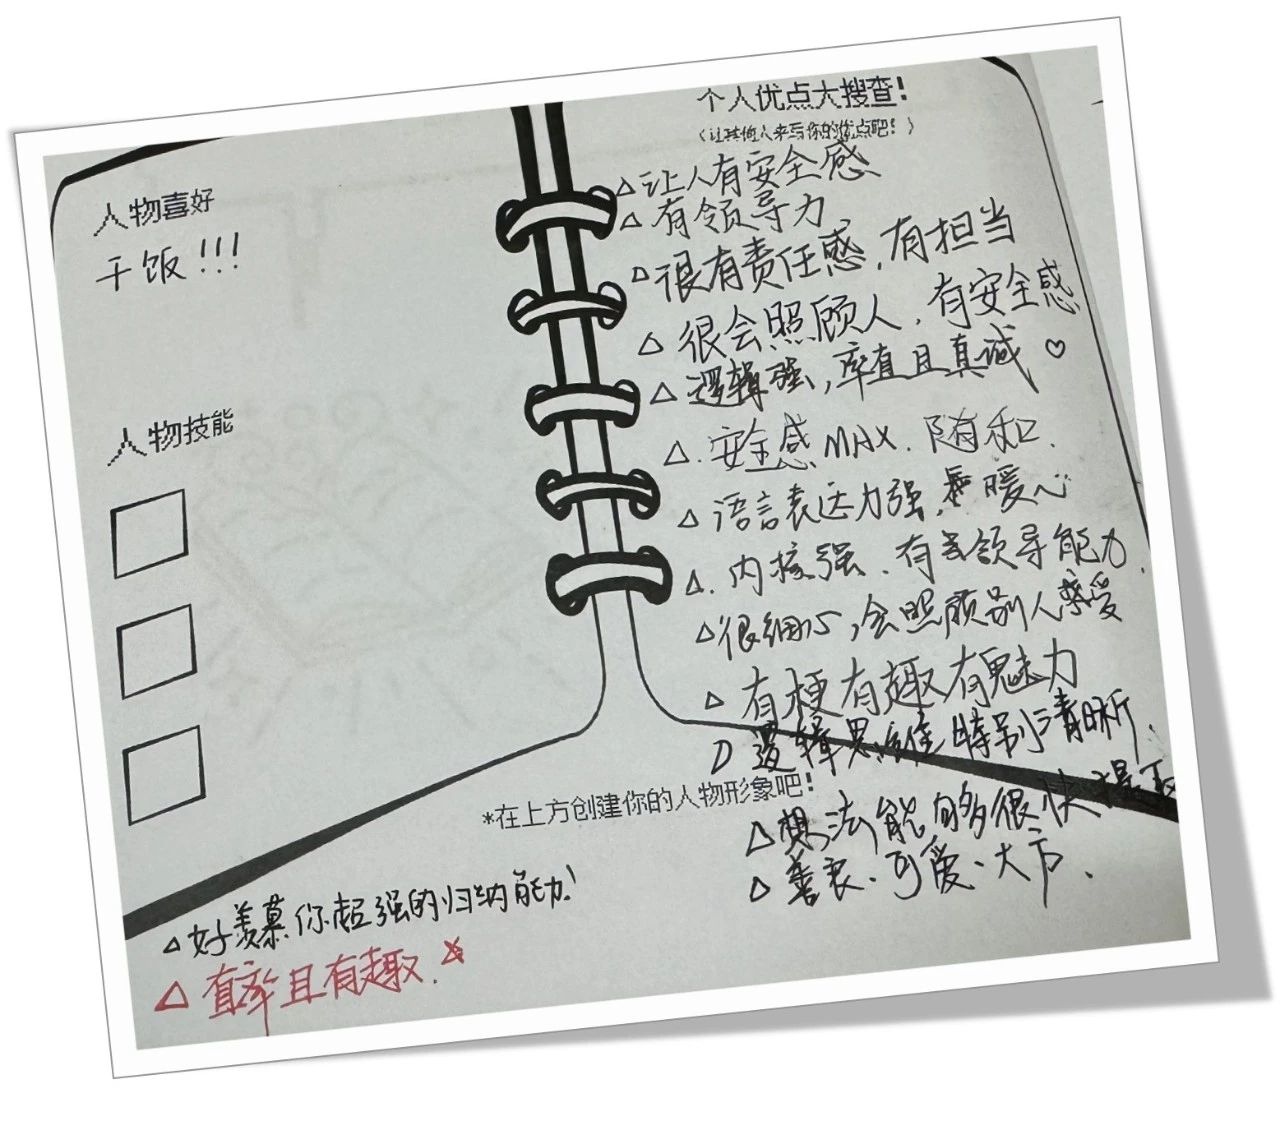 人物喜好
干饭!!!
人物技能
个人优点大搜查!
(让其他人来写你的优点吧!)
△让人有安全感
△有领导力
△很有责任感,有担当
△很会照顾人,有安全感
△逻辑强,率直且真诚♡
△.安全感MAX.随和.
△语言表达力强,暖心
△.内核强、有领导能力.
△很细心,会照顾别人感受
△有梗有趣有魅力
△逻辑思维特别清晰.
*在上方创建你的人物形象吧!
△想法能够很快提取
△善良、可爱、大方、
△好羡慕你超强的归纳能力!
△直率且有趣.☆